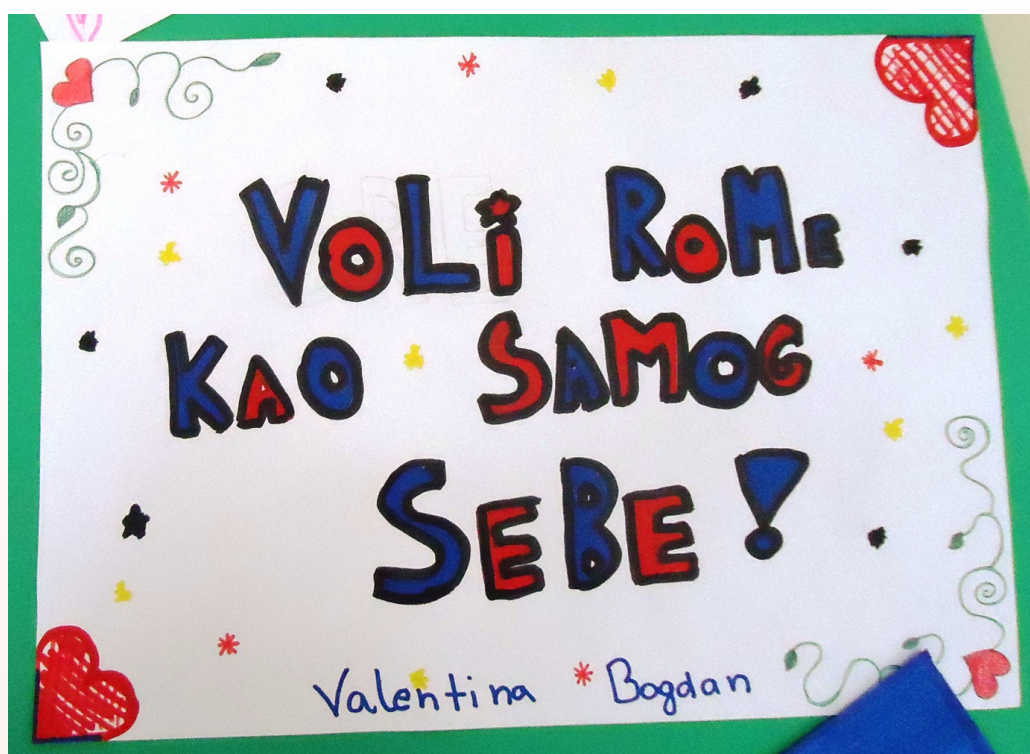 VOLi ROME
KAO SAMOG
SEBE!
Valentina * Bogdan